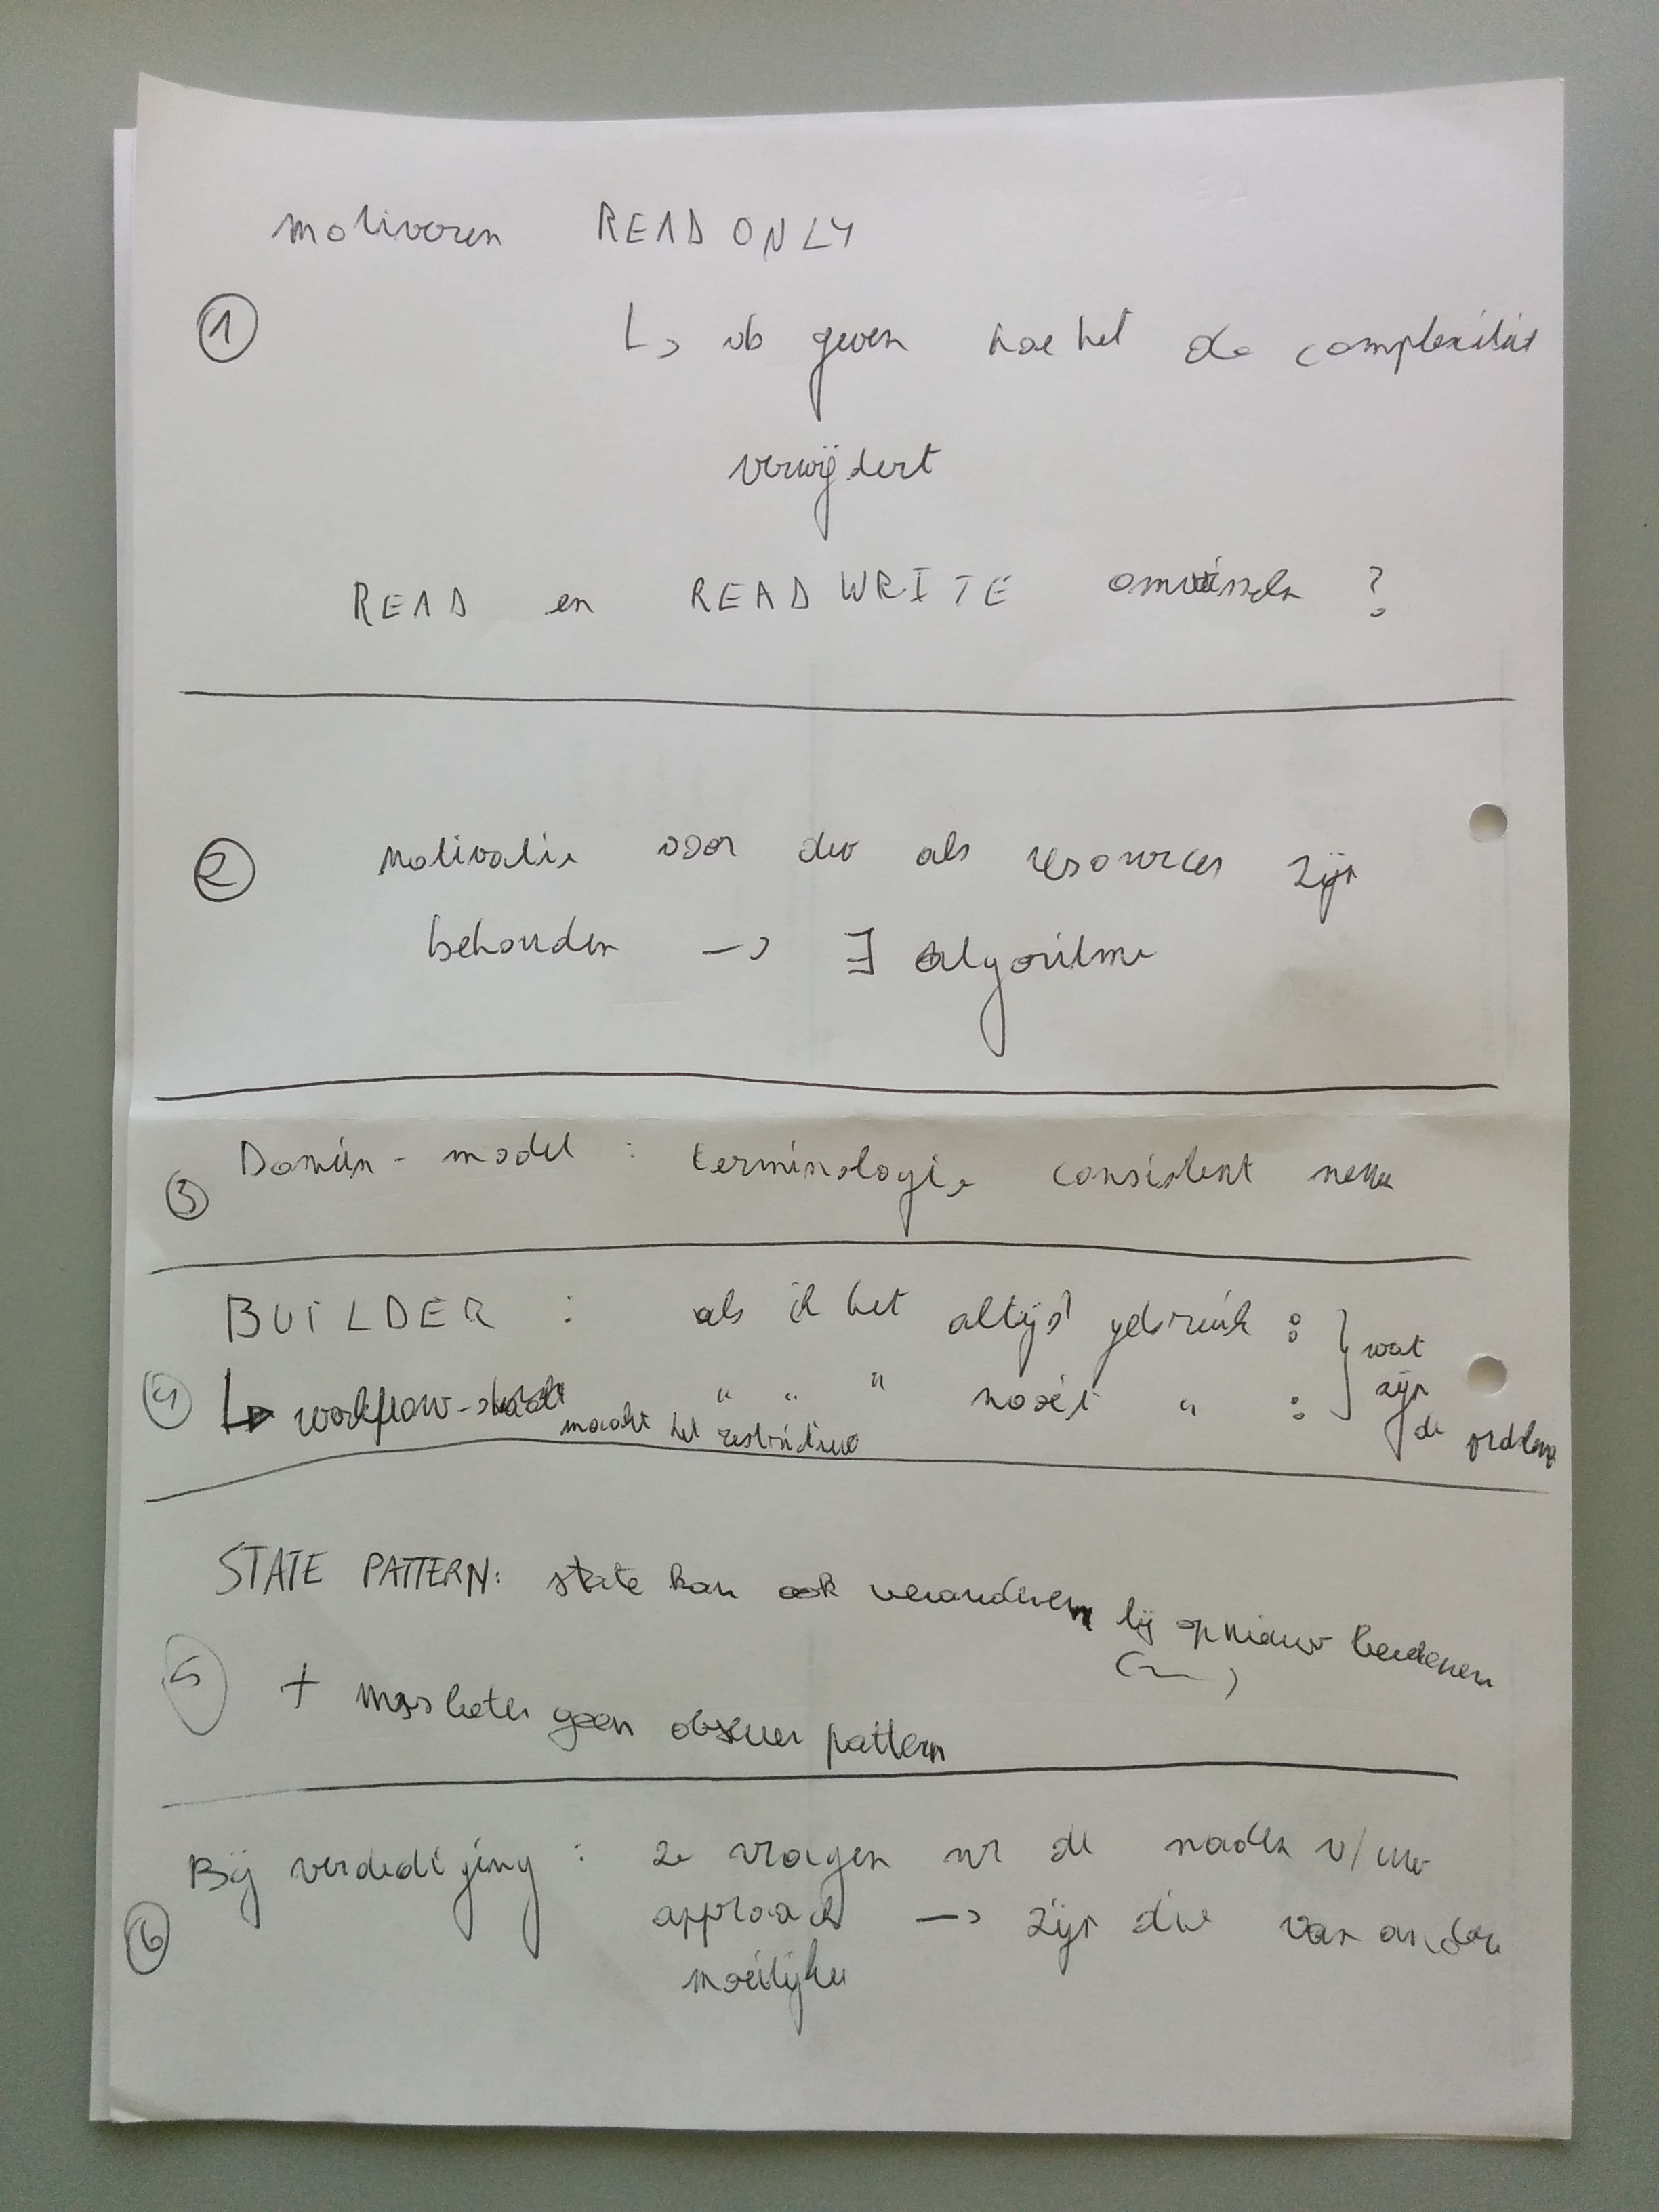 motiveren READ ONLY
① ↳ vb geven hoe het de complexiteit
verwijdert
READ en READ WRITE omwisselen ?
② motivatie voor als resources zijn
behouden → ∃ algoritme
Domein-model : terminologie consistent
③
BUILDER : als ik het altijd gebruik : } wat
④ ↳ workflow- " " " nooit " : zijn
maakt het restrictive de problem
STATE PATTERN: state kan ook veranderen bij opnieuw berekenen
⑤ + misbeter geen observer pattern
Bij verdediging : ze vragen nr de nadelen v/ uw
⑥ approach → zijn die van andere
moeilijker